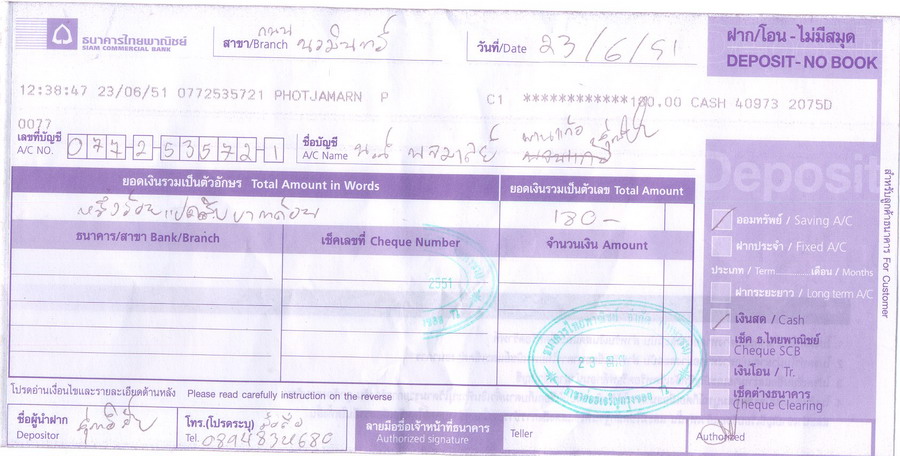 ธนาคารไทยพาณิชย์
SIAM COMMERCIAL BANK
สาขา/Branch ถนน นวมินทร์
วันที่/Date 23/6/51
ฝาก/โอน - ไม่มีสมุด
DEPOSIT - NO BOOK
12:38:47 23/06/51 0772535721 PHOTJAMARN P C1 ************180.00 CASH 40973 2075D
0077
เลขที่บัญชี
A/C NO. 077-2-53572-1
ชื่อบัญชี
A/C Name
ยอดเงินรวมเป็นตัวอักษร Total Amount in Words
ยอดเงินรวมเป็นตัวเลข Total Amount
หนึ่งร้อยแปดสิบบาทถ้วน
180-
ธนาคาร/สาขา Bank/Branch
เช็คเลขที่ Cheque Number
จำนวนเงิน Amount
2551
23
Deposit
ออมทรัพย์ / Saving A/C
ฝากประจำ / Fixed A/C
ประเภท / Term............เดือน / Months
ฝากระยะยาว / Long term A/C
เงินสด / Cash
เช็ค ธ.ไทยพาณิชย์
Cheque SCB
เงินโอน / Tr.
เช็คต่างธนาคาร
Cheque Clearing
สำหรับลูกค้าธนาคาร For Customer
โปรดอ่านเงื่อนไขและรายละเอียดด้านหลัง Please read carefully instruction on the reverse
ชื่อผู้นำฝาก
Depositor
โทร.(โปรดระบุ) มือถือ
Tel. 0894834680
ลายมือชื่อเจ้าหน้าที่ธนาคาร
Authorized signature
Teller
Authorized